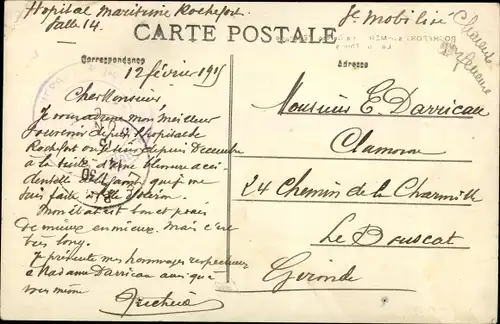 Hopital Maritime Rochefort
Salle 14.
St Mobilisé
CARTE POSTALE
Correspondance
Adresse
12 février 1915
Cher Monsieur,
Je vous adresse mon meilleur
souvenir depuis l'hopital de
Rochefort où je suis depuis Décembre
à la suite d'une blessure acci-
dentelle que je me
suis faite à
Mon état est bon et je vais
de mieux en mieux. Mais c'est
très long.
Je présente mes hommages respectueux
à Madame Darricau ainsi qu'à
vous même
Monsieur E. Darricau
24 Chemin de la Charmille
Le Bouscat
Gironde